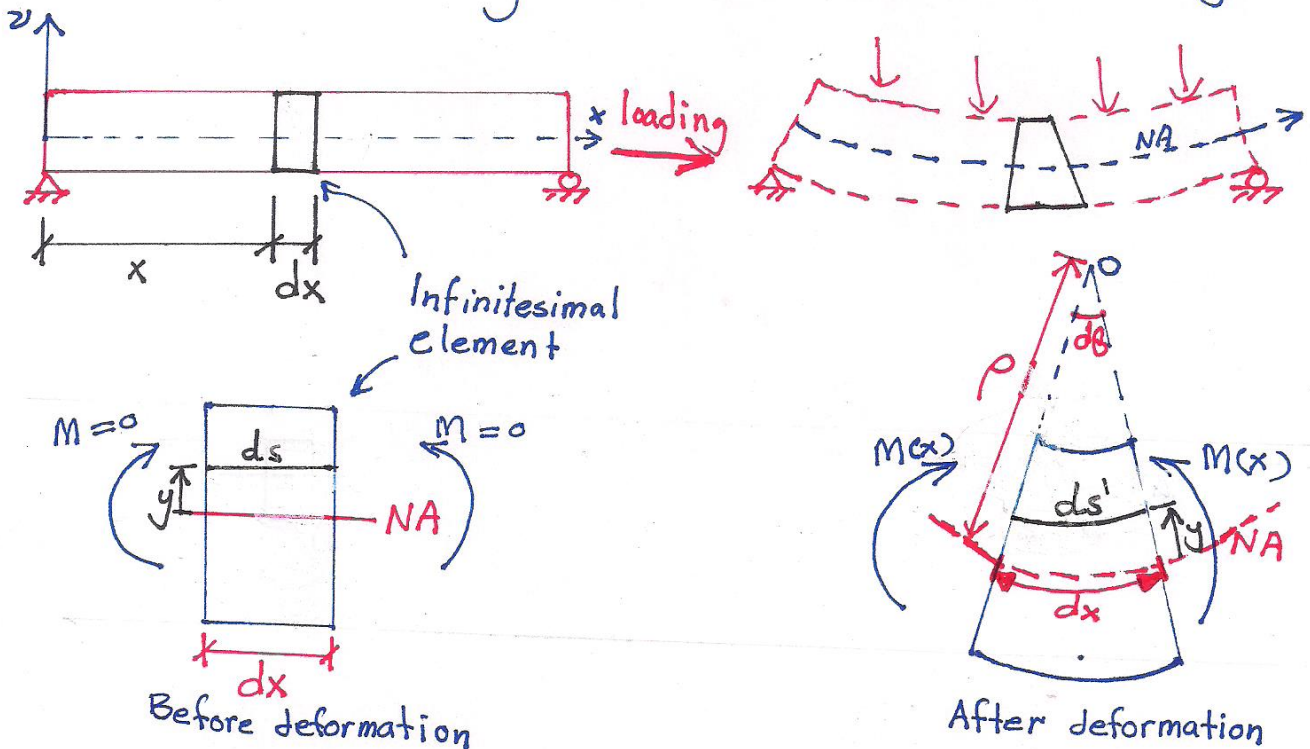 v
x loading
NA
x
dx
Infinitesimal
element
O
dθ
ρ
M=0
M=0
ds
y
NA
dx
Before deformation
M(x)
M(x)
ds'
y
NA
dx
After deformation